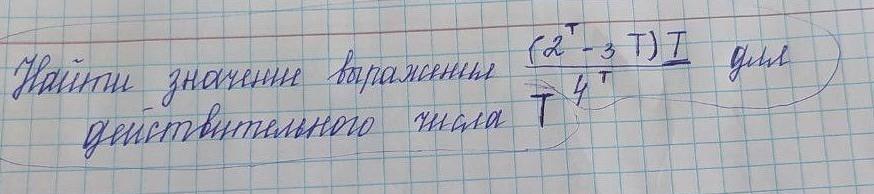 Найти значение выражения (2^T - 3 T) T / 4^T для
действительного числа T